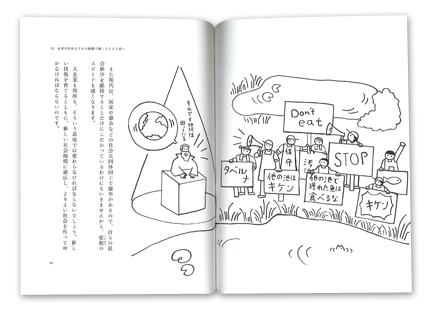 また現代は、国家や都市などの社会共同体同士で競争があるので、自らの社
会秩序を維持することだけにこだわっているわけにもいきませんから、変化の
スピードも速くなります。
大企業も役所も、そういう意味では変わらなければならないでしょう。新し
い技術を育てるとともに、新しい社会環境に適応し、よりよい社会を作ってゆ
かなければならないのです。
それでも地球は
回っている
Don't
eat
保守
STOP
タベルナ
他の池は
キケン
他の池で
獲れた魚を
食べるな
キケン